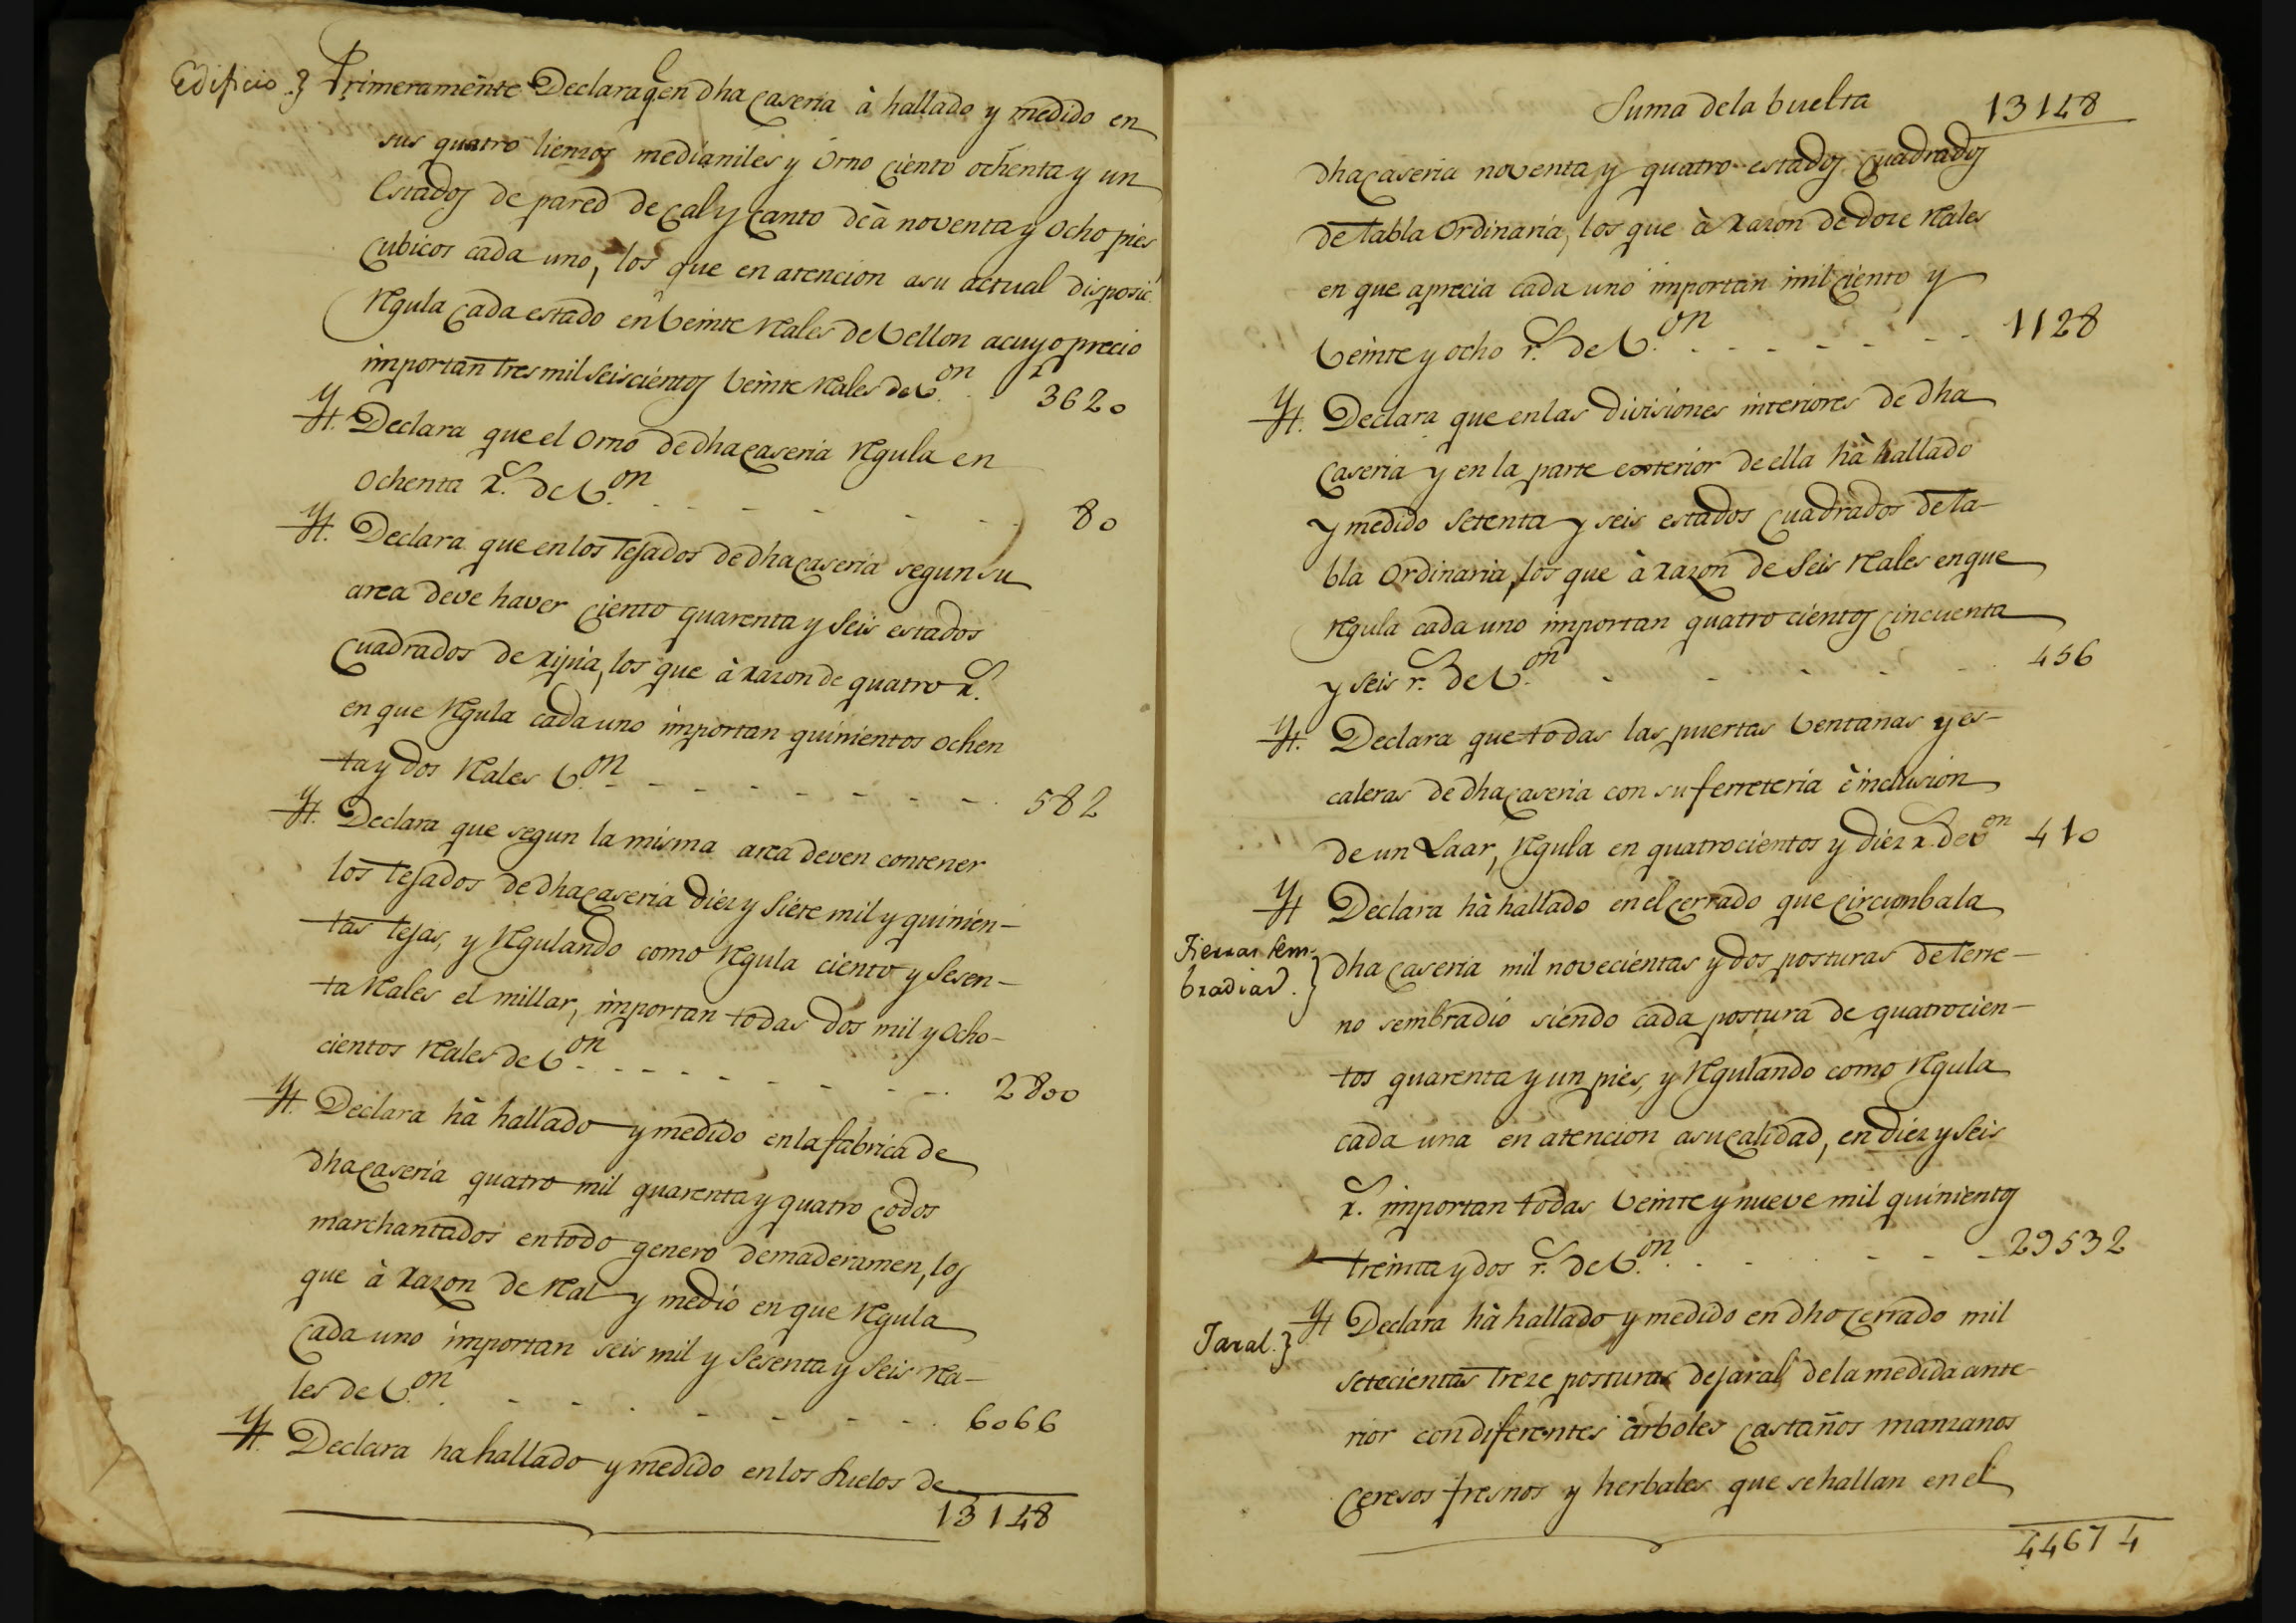 Edificio.} Primeramente Declara q.e en dha caseria à hallado y medido en
sus quatro lienzos medianiles y Orno ciento ochenta y un
Estados de pared de cal y canto de à noventa y ocho pies
cubicos cada uno, los que en atencion a su actual disposic.n
Regula cada estado en Veinte Reales de Vellon a cuyo precio
importan tres mil seiscientos Veinte Reales de V.on . . 3620
Yt. Declara que el Orno de dha caseria Regula en
Ochenta r.s de V.on - - - - - - 80
Yt. Declara que en los Tejados de dha caseria segun su
area deve haver ciento quarenta y seis estados
cuadrados de ripia, los que à razon de quatro r.s
en que Regula cada uno importan quinientos ochen
ta y dos Reales V.on - - - - - - - 582
Yt. Declara que segun la misma area deven contener
los Tejados de dha caseria diez y siete mil y quinien-
tas tejas, y Regulando como Regula ciento y sesen-
ta Reales el millar, importan todas dos mil y ocho-
cientos Reales de V.on - - - - - - - - 2800
Yt. Declara hà hallado y medido en la fabrica de
dha caseria quatro mil quarenta y quatro codos
marchantados en todo genero de maderamen, los
que à razon de Real y medio en que Regula
cada uno importan seis mil y sesenta y seis Rea-
les de V.on . - - - - - - - 6066
Yt. Declara ha hallado y medido en los suelos de
13148
Suma de la buelta 13148
dha caseria noventa y quatro estados cuadrados
de tabla Ordinaria, los que à razon de doze Reales
en que aprecia cada uno importan mil ciento y
Veinte y ocho r.s de V.on . - - - - - - - 1128
Yt. Declara que en las divisiones interiores de dha
caseria y en la parte exterior de ella hà hallado
y medido setenta y seis estados cuadrados de ta-
bla Ordinaria, los que à razon de seis Reales en que
regula cada uno importan quatrocientos cincuenta
y seis r.s de V.on - - - - - 456
Yt. Declara que todas las puertas Ventanas y es-
caleras de dha caseria con su ferreteria è inclusion
de un Laar, Regula en quatrocientos y diez r.s de V.on 410
Yt Declara hà hallado en el cerrado que circumbala
Tierras sem-
bradias.} dha caseria mil novecientas y dos posturas de terre-
no sembradio siendo cada postura de quatrocien-
tos quarenta y un pies, y Regulando como Regula
cada una en atencion a su calidad, en diez y seis
r.s importan todas Veinte y nueve mil quinientos
treinta y dos r.s de V.on . - - - - - 29532
Jaral.} Yt Declara hà hallado y medido en dho cerrado mil
setecientas treze posturas de jaral de la medida ante-
rior con diferentes arboles castaños manzanos
ceresos fresnos y herbales que se hallan en el
44674